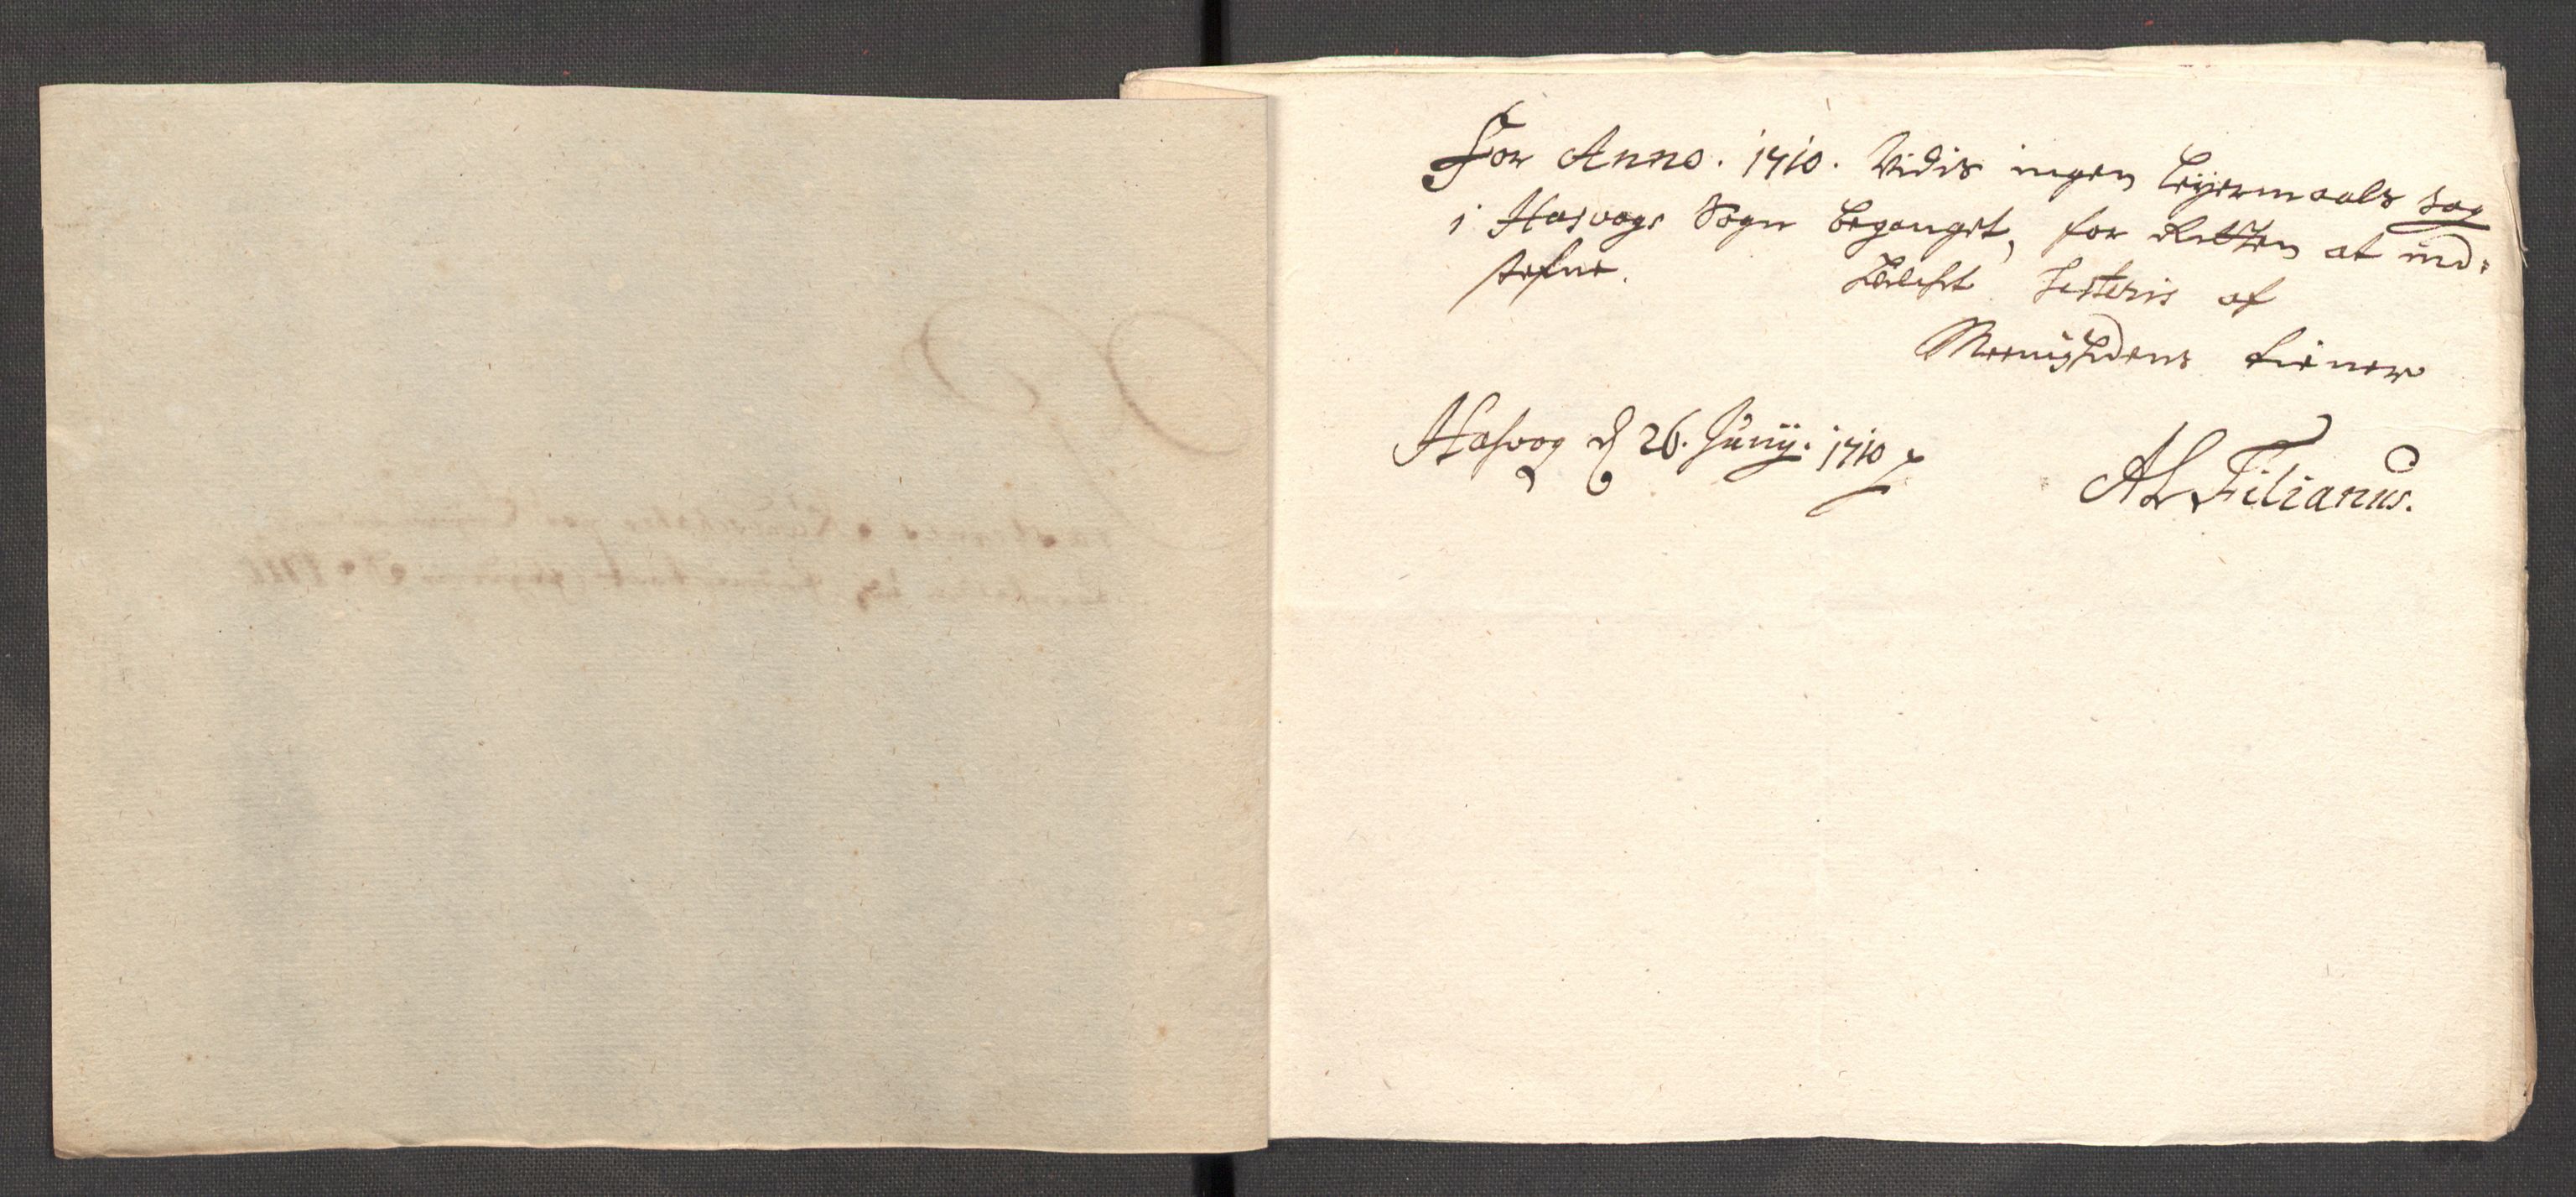 For Anno. 1710. Vidis ingen Leÿermaals sag
i Hasvogs Sogn beganget, for Retten at ind-
stefne. testeris af
Meenighedens tiener
Hasvog d 26. Junij. 1710
AL Filianus.